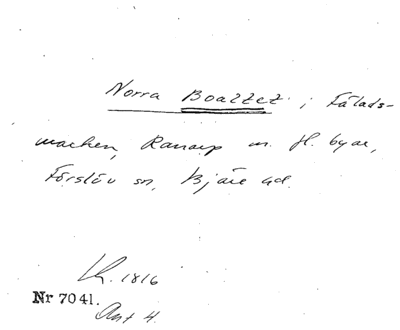 Norra Boallet i Fälads-
marken, Ranarp m. fl. byar,
Förslöv sn, Bjäre hd.
Lk. 1816
Nr 7041.
Akt 4.